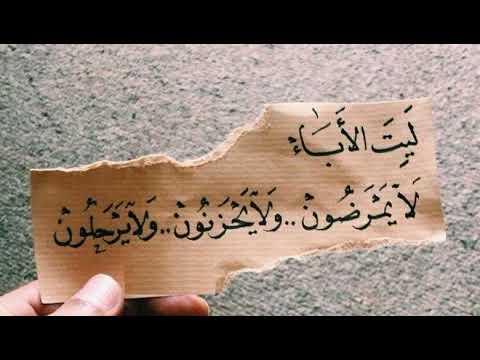 لَيتَ الأَبَاءْ
لاَ يَمْرَضُونْ..وَلاَ يَحْزَنُونْ..وَلاَ يَرْحَلُونْ